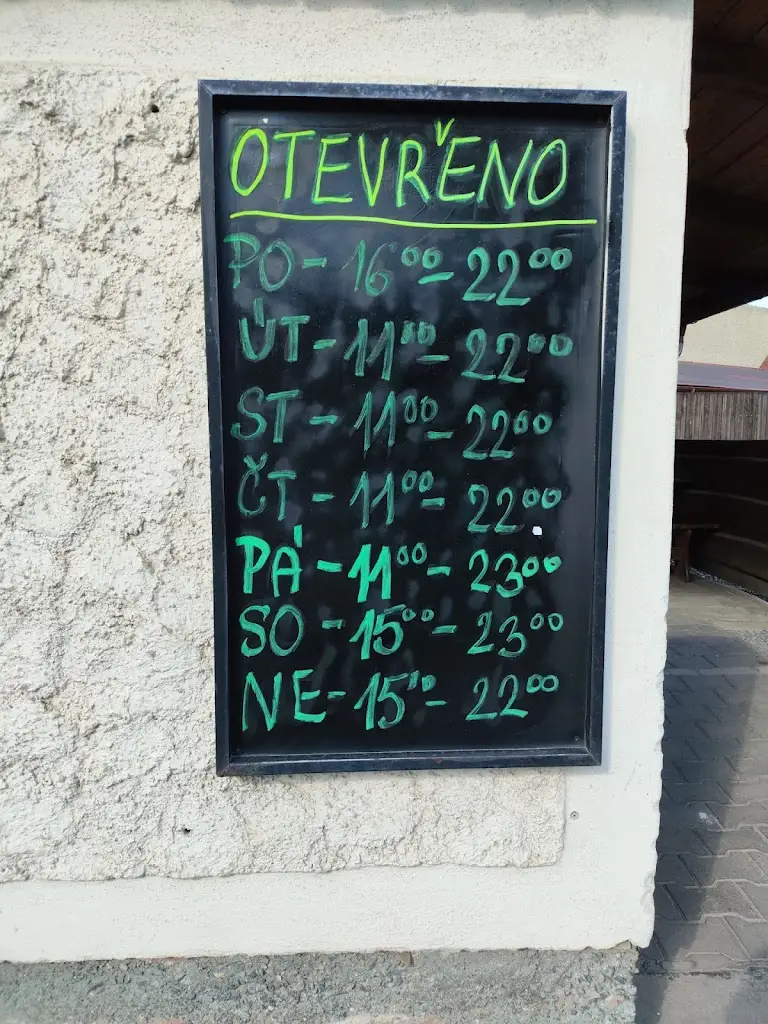 OTEVŘENO
PO - 16⁰⁰ - 22⁰⁰
ÚT - 11⁰⁰ - 22⁰⁰
ST - 11⁰⁰ - 22⁰⁰
ČT - 11⁰⁰ - 22⁰⁰
PÁ - 11⁰⁰ - 23⁰⁰
SO - 15⁰⁰ - 23⁰⁰
NE - 15⁰⁰ - 22⁰⁰